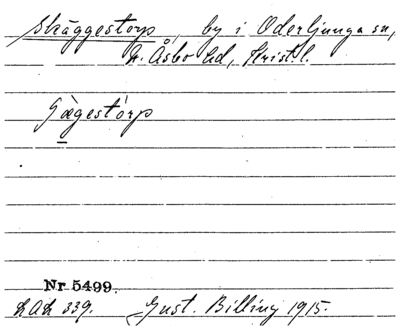 Skäggestorp, by i Oderljunga sn,
N. Åsbo hd, Krist. l.
Gægestórp
Nr 5499.
LAL 339. Gust. Billing 1915.